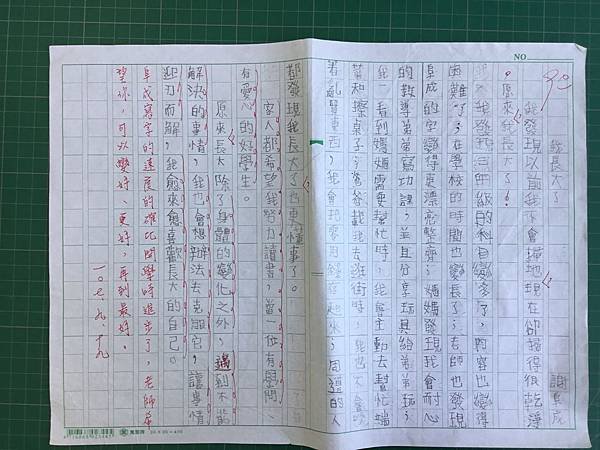 NO.
90
我長大了
謝昌成
我發現以前我不會掃地現在卻掃得很乾淨
,原來我長大了!
我發現三年級的科目變多了,內容也變得
困難了;在學校的時間也變長了;老師也發現
昌成的字變得更漂亮整齊;媽媽發現我會耐心
的教導弟弟寫功課,並且分享玩具給弟弟玩;
我一看到媽媽需要幫忙時,我會主動去幫忙端
菜和擦桌子;爸爸載我去逛街時,我也不會
著亂買東西,我會把零用錢存起來;周遭的人
都發現我長大了也更懂事了。
家人都希望我努力讀書,當一位有學問、
有愛心的好學生。
原來長大除了身體的變化之外,遇到不能
解決的事情,我也會想辦法去克服它,讓事情
迎刃而解,我愈來愈喜歡長大的自己。
昌成寫字的速度的確比開學時進步了,老師希
望你,可以變好、更好,再到最好。
一○七、九、十九